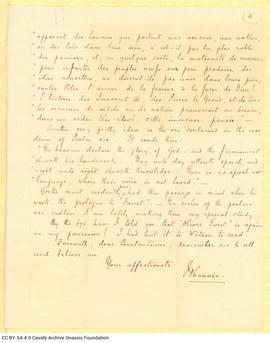 apparent des hommes qui portent une science, une nation,
ou des lois dans leur sein, n'est-il pas la plus noble
des passions, et, en quelque sorte, la maternité de
pour enfanter des peuples neufs ou pour produire des
idées nouvelles, ne doivent-ils pas unir dans leurs
têtes de la femme à la force de Dieu!
"L'histoire des Innocent III, des Pierre le Grand, et de tous
les meneurs de siècle ou de nation prouverait au besoin,
dans un ordre très élevé, cette immense pensée."
Another very pretty idea is the one contained in the
of Psalm xix. It reads thus:
"The heavens declare the glory of God; and the firmament
sheweth his handiwork. Day unto day uttereth speech, and
night unto night sheweth knowledge. There is no speech nor
language, where their voice is not heard."
Goethe must evidently had this passage in mind when he
wrote the prologue to "Faust". The riches of the psalms
are endless. I am lately making them my special study.
By the bye have I told you that "Oliver Twist" is again
in my possession? I had lent it to Watson to read.
Farewell, dear Constantinus; remember me to all
and believe me
Your affectionate
CC BY-SA 4.0 Cavafy Archive Onassis Foundation